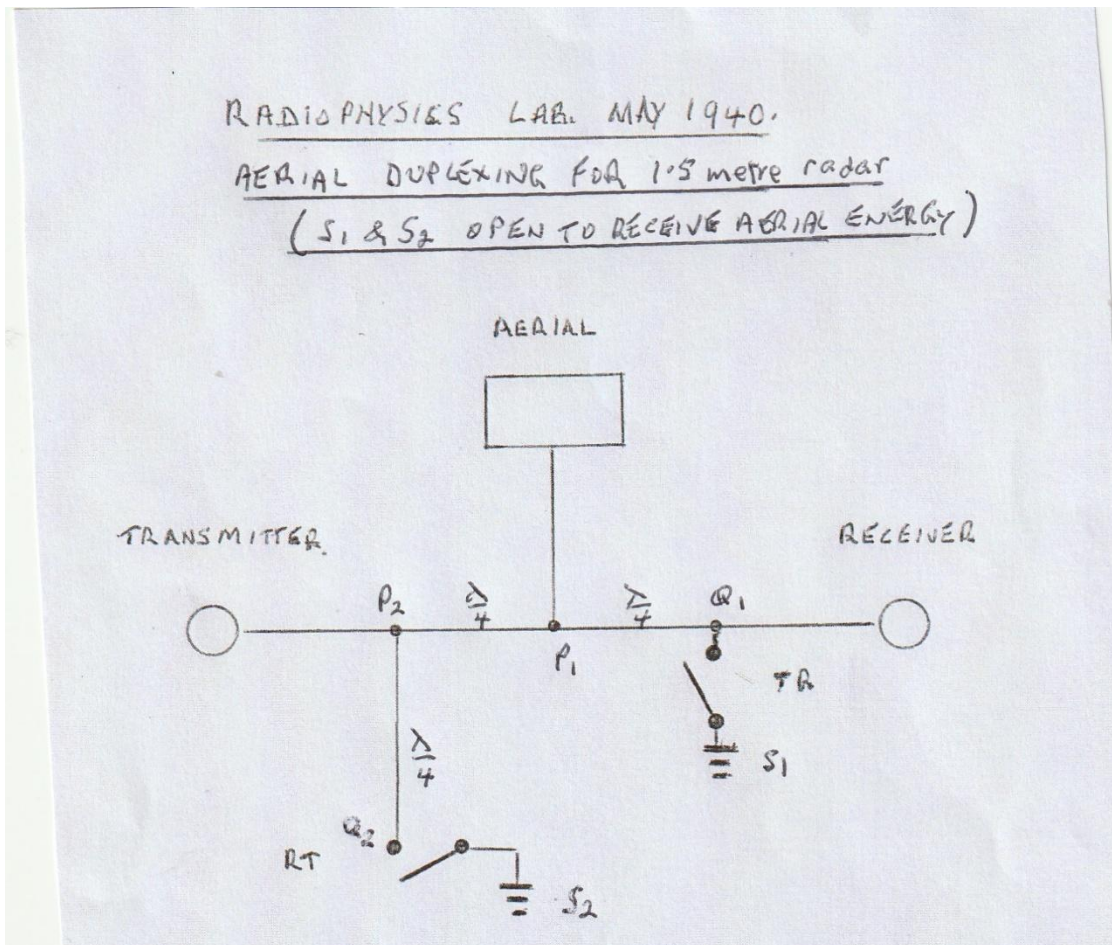 RADIOPHYSICS LAB. MAY 1940.
AERIAL DUPLEXING FOR 1.5 metre radar
(S1 & S2 OPEN TO RECEIVE AERIAL ENERGY)
AERIAL
TRANSMITTER.
RECEIVER
P2
λ/4
P1
λ/4
Q1
TR
S1
λ/4
Q2
RT
S2